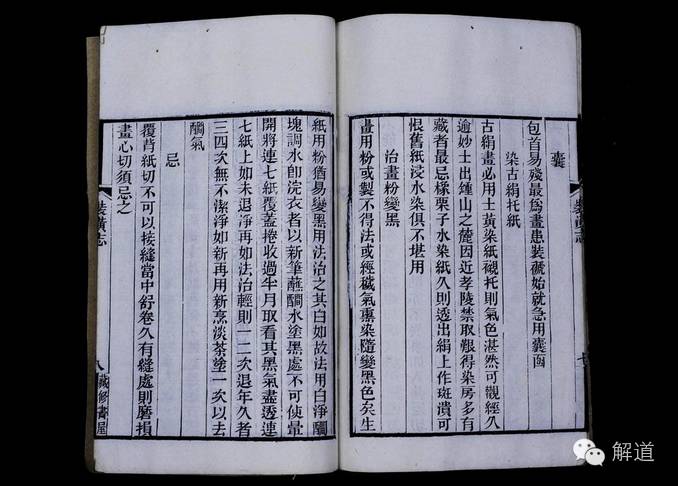 囊
包首易殘最爲畫患裝褫始就急用囊函
染古絹托紙
古絹畫必用土黃染紙襯托則氣色湛然可觀經久
逾妙土出鍾山之麓因近孝陵禁取艱得染房多有
藏者最忌橡栗子水染紙久則透出絹上作斑漬可
恨舊紙浸水染俱不堪用
治畫粉變黑
畫用粉或製不得法或經穢氣熏染隨變黑色矣生
紙用粉猶易變黑用法治之其白如故法用白淨
塊調水卽浣衣者以新筆蘸水塗黑處不可使暈
開將連七紙覆蓋捲收過半月取看其黑氣盡透連
七紙上如未退淨再如法治輕則一二次退年久者
三四次無不潔淨如新再用新烹淡茶塗一次以去
氣
忌
覆背紙切不可以接縫當中舒卷久有縫處則磨損
畫心切須忌之
裝潢志
八
藏修書屋
解道